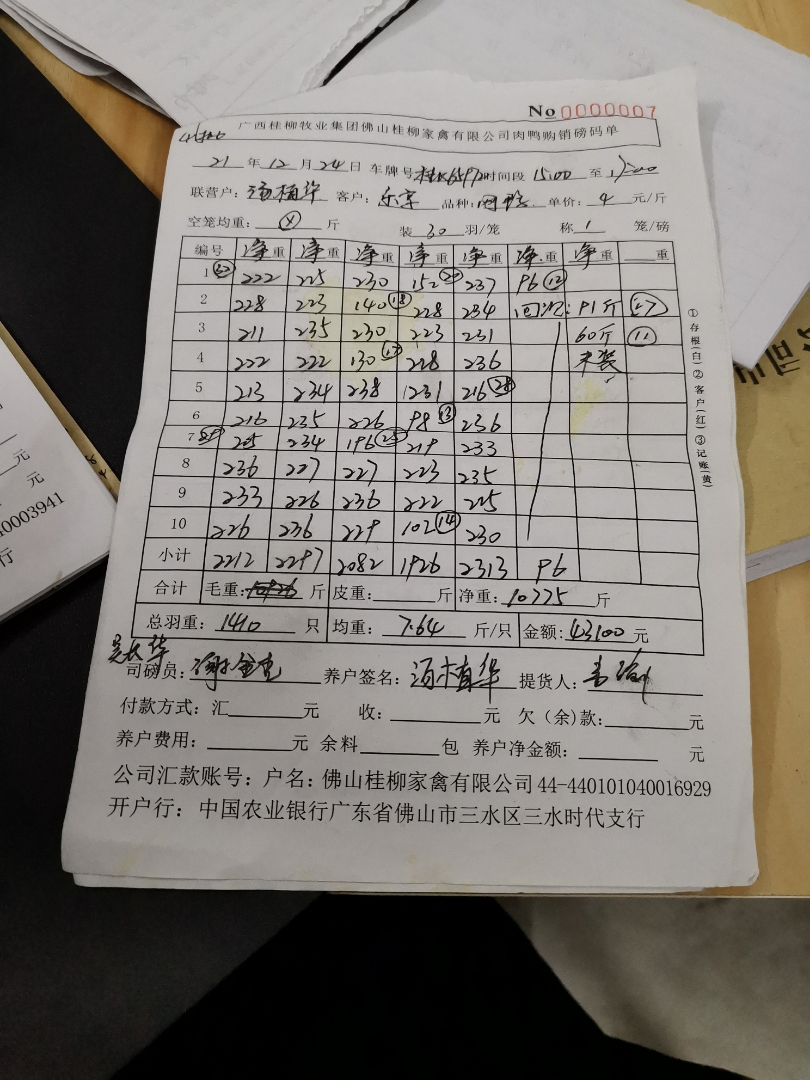 No 0000007
广西桂柳牧业集团佛山桂柳家禽有限公司肉鸭购销磅码单
21 年 12 月 24 日 车牌号 时间段 15:00 至
联营户: 汤植华 客户: 乐享 品种: 单价: 4 元/斤
空笼均重: 斤 装 30 羽/笼 称 1 笼/磅
编号 净重 净重 净重 净重 净重 净重 净重 重
1 222 225 230 152 237 96 12
2 228 223 140 18 228 234 : 91斤
3 211 235 230 223 231 60斤 11
4 222 222 130 17 228 236 未装
5 213 234 238 231 216 28
6 216 235 226 98 13 236
7 205 234 196 25 219 233
8 236 227 227 223 235
9 233 226 236 222 225
10 226 236 229 102 14 230
小计 2212 2297 2082 1926 2313 96
合计 毛重: 斤 皮重: 斤 净重: 10775 斤
总羽重: 1410 只 均重: 7.64 斤/只 金额: 43100 元
吴长华
司磅员: 养户签名: 汤植华 提货人:
付款方式: 汇 元 收: 元 欠(余)款: 元
养户费用: 元 余料 包 养户净金额: 元
公司汇款账号: 户名: 佛山桂柳家禽有限公司 44-440101040016929
开户行: 中国农业银行广东省佛山市三水区三水时代支行
①存根(白)②客户(红)③记账(黄)
元
元
0003941
行